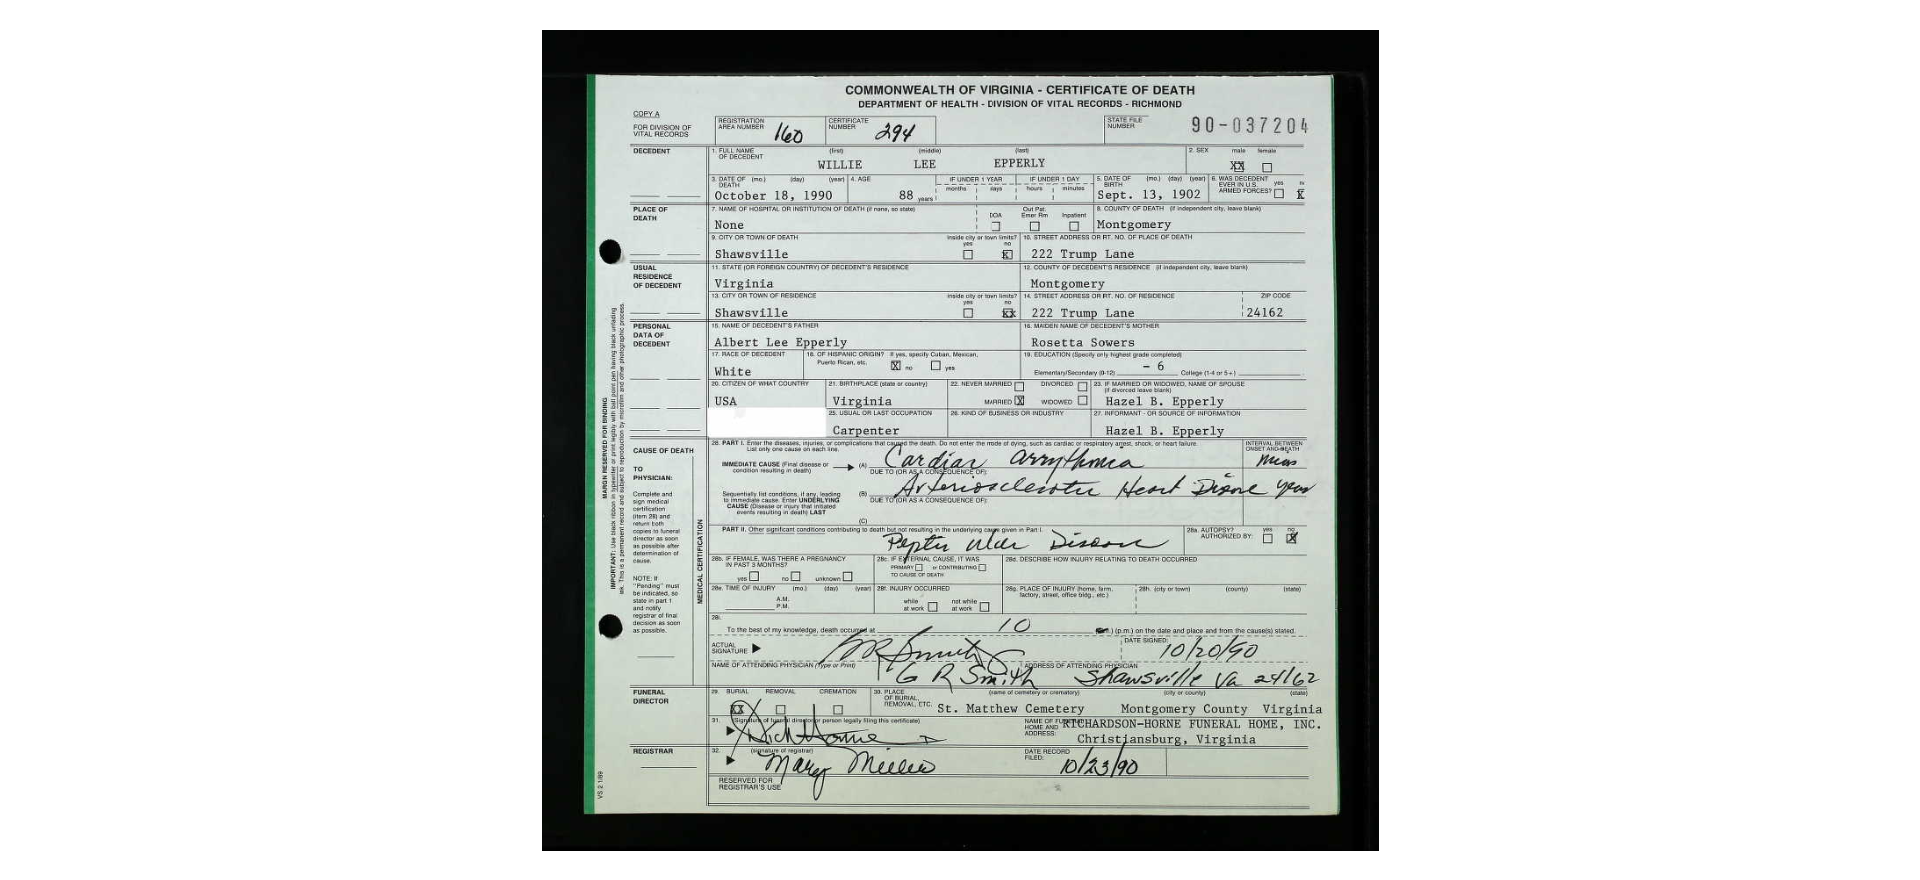 COMMONWEALTH OF VIRGINIA - CERTIFICATE OF DEATH
DEPARTMENT OF HEALTH - DIVISION OF VITAL RECORDS - RICHMOND
COPY A
FOR DIVISION OF VITAL RECORDS
REGISTRATION AREA NUMBER 160
CERTIFICATE NUMBER 294
STATE FILE NUMBER 90-037204
DECEDENT
1. FULL NAME OF DECEDENT (first) (middle) (last)
WILLIE LEE EPPERLY
2. SEX male female
XX
3. DATE OF DEATH (mo.) (day) (year)
October 18, 1990
4. AGE
88 years
IF UNDER 1 YEAR months days
IF UNDER 1 DAY hours minutes
5. DATE OF BIRTH (mo.) (day) (year)
Sept. 13, 1902
6. WAS DECEDENT EVER IN U.S. ARMED FORCES? yes
X
PLACE OF DEATH
7. NAME OF HOSPITAL OR INSTITUTION OF DEATH (if none, so state)
None
DOA
Out Pat. Emer Rm
Inpatient
8. COUNTY OF DEATH (if independent city, leave blank)
Montgomery
9. CITY OR TOWN OF DEATH
Shawsville
inside city or town limits? yes no
X
10. STREET ADDRESS OR RT. NO. OF PLACE OF DEATH
222 Trump Lane
USUAL RESIDENCE OF DECEDENT
11. STATE (OR FOREIGN COUNTRY) OF DECEDENT'S RESIDENCE
Virginia
12. COUNTY OF DECEDENT'S RESIDENCE (if independent city, leave blank)
Montgomery
13. CITY OR TOWN OF RESIDENCE
Shawsville
inside city or town limits? yes no
XX
14. STREET ADDRESS OR RT. NO. OF RESIDENCE
222 Trump Lane
ZIP CODE
24162
PERSONAL DATA OF DECEDENT
15. NAME OF DECEDENT'S FATHER
Albert Lee Epperly
16. MAIDEN NAME OF DECEDENT'S MOTHER
Rosetta Sowers
17. RACE OF DECEDENT
White
18. OF HISPANIC ORIGIN? If yes, specify Cuban, Mexican, Puerto Rican, etc.
X no yes
19. EDUCATION (Specify only highest grade completed)
Elementary/Secondary (0-12) - 6 College (1-4 or 5+)
20. CITIZEN OF WHAT COUNTRY
USA
21. BIRTHPLACE (state or country)
Virginia
22. NEVER MARRIED DIVORCED
MARRIED X WIDOWED
23. IF MARRIED OR WIDOWED, NAME OF SPOUSE (if divorced leave blank)
Hazel B. Epperly
25. USUAL OR LAST OCCUPATION
Carpenter
26. KIND OF BUSINESS OR INDUSTRY
27. INFORMANT - OR SOURCE OF INFORMATION
Hazel B. Epperly
CAUSE OF DEATH
TO PHYSICIAN:
Complete and sign medical certification (item 28) and return both copies to funeral director as soon as possible after determination of cause.
NOTE: If "Pending" must be indicated, so state in part 1 and notify registrar of final decision as soon as possible.
MEDICAL CERTIFICATION
MARGIN RESERVED FOR BINDING
IMPORTANT: Use black ribbon in typewriter or print legibly with ball point pen having black unfading ink. This is a permanent record and subject to reproduction by microfilm and other photographic process.
28. PART I. Enter the diseases, injuries, or complications that caused the death. Do not enter the mode of dying, such as cardiac or respiratory arrest, shock, or heart failure.
List only one cause on each line.
INTERVAL BETWEEN ONSET AND DEATH
IMMEDIATE CAUSE (Final disease or condition resulting in death)
(A) Cardiac arrythmia
DUE TO (OR AS A CONSEQUENCE OF):
Sequentially list conditions, if any, leading to immediate cause. Enter UNDERLYING CAUSE (Disease or injury that initiated events resulting in death) LAST
(B) Arteriosclerotic Heart Disease years
DUE TO (OR AS A CONSEQUENCE OF):
(C)
PART II. Other significant conditions contributing to death but not resulting in the underlying cause given in Part I.
Peptic Ulcer Disease
28a. AUTOPSY? AUTHORIZED BY: yes no
X
28b. IF FEMALE, WAS THERE A PREGNANCY IN PAST 3 MONTHS?
yes no unknown
28c. IF EXTERNAL CAUSE, IT WAS
PRIMARY or CONTRIBUTING
TO CAUSE OF DEATH
28d. DESCRIBE HOW INJURY RELATING TO DEATH OCCURRED
28e. TIME OF INJURY (mo.) (day) (year)
A.M.
P.M.
28f. INJURY OCCURRED
while at work
not while at work
28g. PLACE OF INJURY (home, farm, factory, street, office bldg., etc.)
28h. (city or town) (county) (state)
28i.
To the best of my knowledge, death occurred at 10 (p.m.) on the date and place and from the cause(s) stated.
ACTUAL SIGNATURE
G R Smith
DATE SIGNED:
10/20/90
NAME OF ATTENDING PHYSICIAN (Type or Print)
G R Smith
ADDRESS OF ATTENDING PHYSICIAN
Shawsville Va 24162
FUNERAL DIRECTOR
29. BURIAL REMOVAL CREMATION
XX
30. PLACE OF BURIAL, REMOVAL, ETC. (name of cemetery or crematory) (city or county) (state)
St. Matthew Cemetery Montgomery County Virginia
31. (signature of funeral director or person legally filing this certificate)
Dick Horne
NAME OF FUNERAL HOME AND ADDRESS:
RICHARDSON-HORNE FUNERAL HOME, INC.
Christiansburg, Virginia
REGISTRAR
32. (signature of registrar)
Mary Miller
DATE RECORD FILED:
10/23/90
RESERVED FOR REGISTRAR'S USE
VS 2 1/89